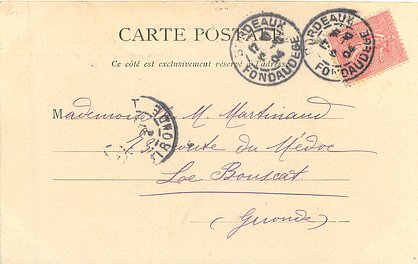 CARTE POSTALE
Ce côté est exclusivement réservé à l'adresse
BORDEAUX
FONDAUDEGE
BORDEAUX
FONDAUDEGE
Mademoiselle M. Martinaud
Route du Médoc
Le Bouscat
GIRONDE
(Gironde)